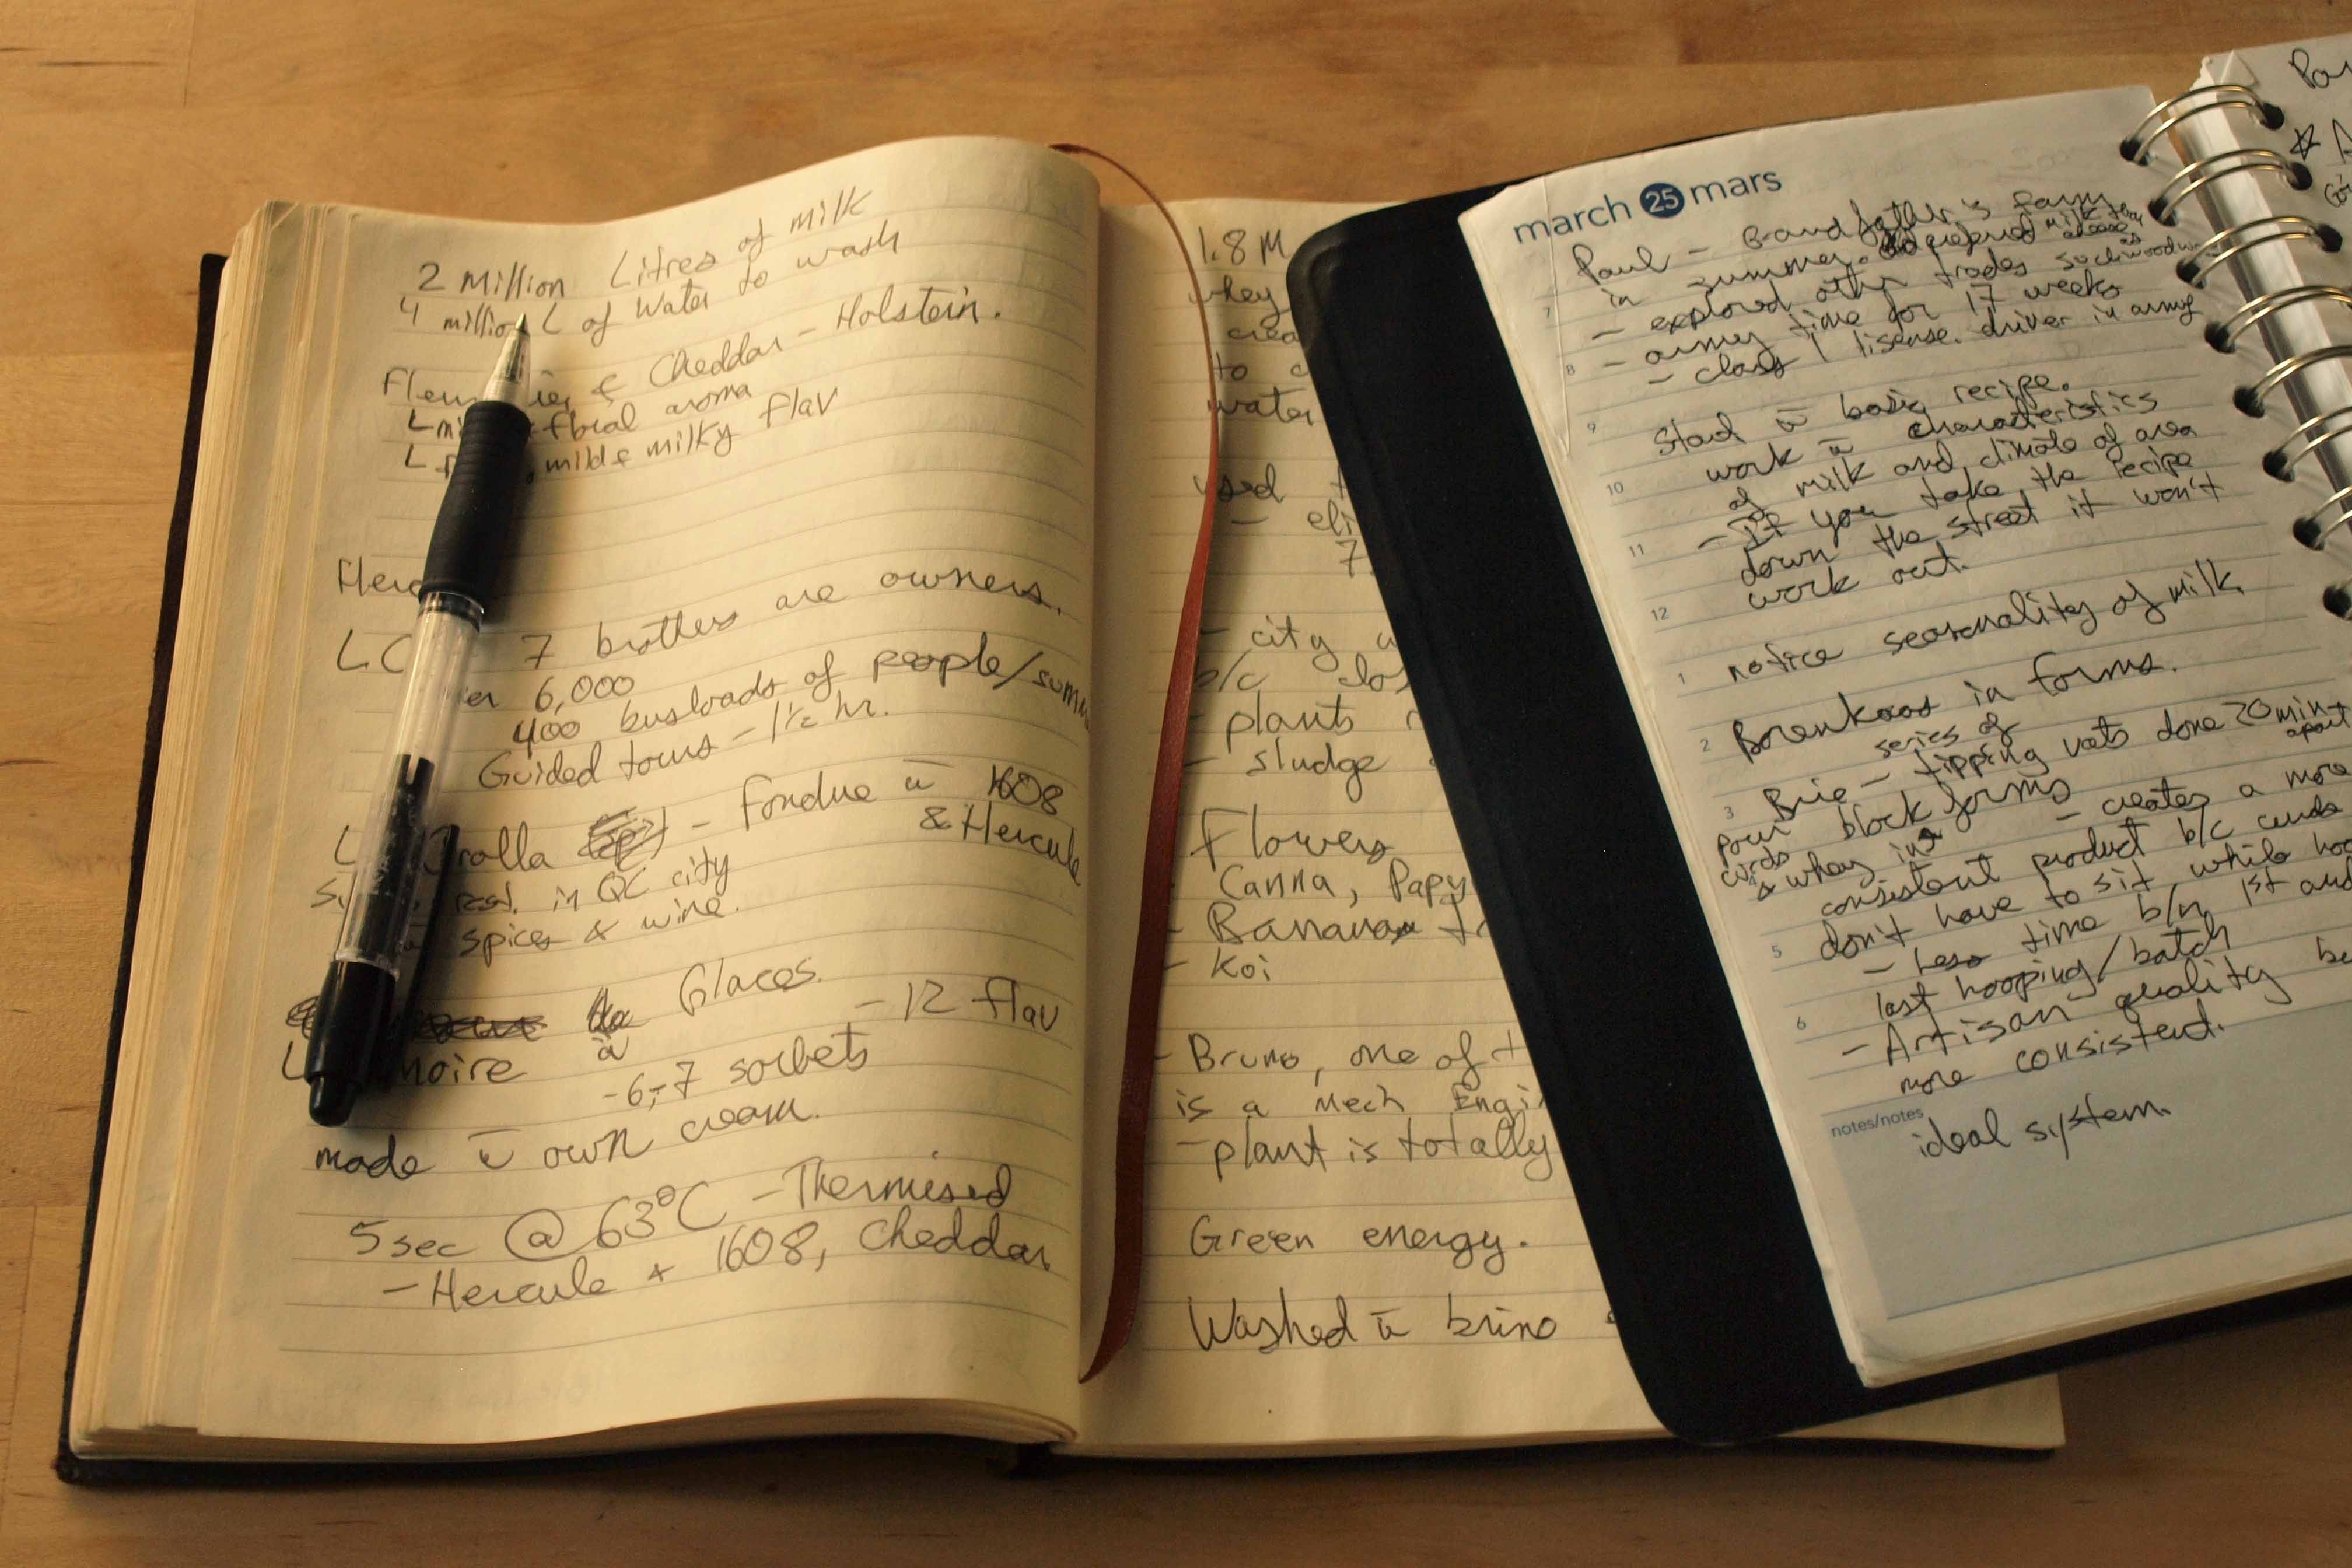 2 Million Litres of milk
4 million L of Water to wash
Cheddar - Holstein.
floral aroma
mild & milky flav
7 brothers are owners.
6,000
400 busloads of people/summ
Guided tours - 1½ hr.
- Fondue w̄ 1608
& Hercule
rest. in QC city
spices & wine.
Glaces.
à
- 12 flav
- 6,-7 sorbets
made w̄ own cream.
5 sec @ 63°C - Thermised
- Hercule + 1608, Cheddar
1.8 M
whey
crea
to c
water
used
- eli
7.
- city w
b/c clos
- plants
- sludge
Flowers
- Canna, Papy
- Banana tr
- Koi
- Bruno, one of t
is a Mech Engi
- plant is totally
Green energy.
Washed w̄ brine
march 25 mars
Paul - Grandfather's farm
in summer. preferred milk than
cheese
- explored other trades such as woodw
- army time for 17 weeks
- class 1 lisense. driver in army
Start w̄ basic recipe.
work w̄ characteristics
of milk and climate of area
- If you take the recipe
down the street it won't
work out.
notice seasonality of milk
in forms.
series of
Brie - tipping vats done 20 min
apart
pour block forms
curds & whey in
- creates a more
consistent product b/c curds
don't have to sit while hoo
- Less time b/n 1st and
last hooping/batch
- Artisan quality be
more consistent.
notes/notes
ideal system.
7
8
9
10
11
12
1
2
3
5
6